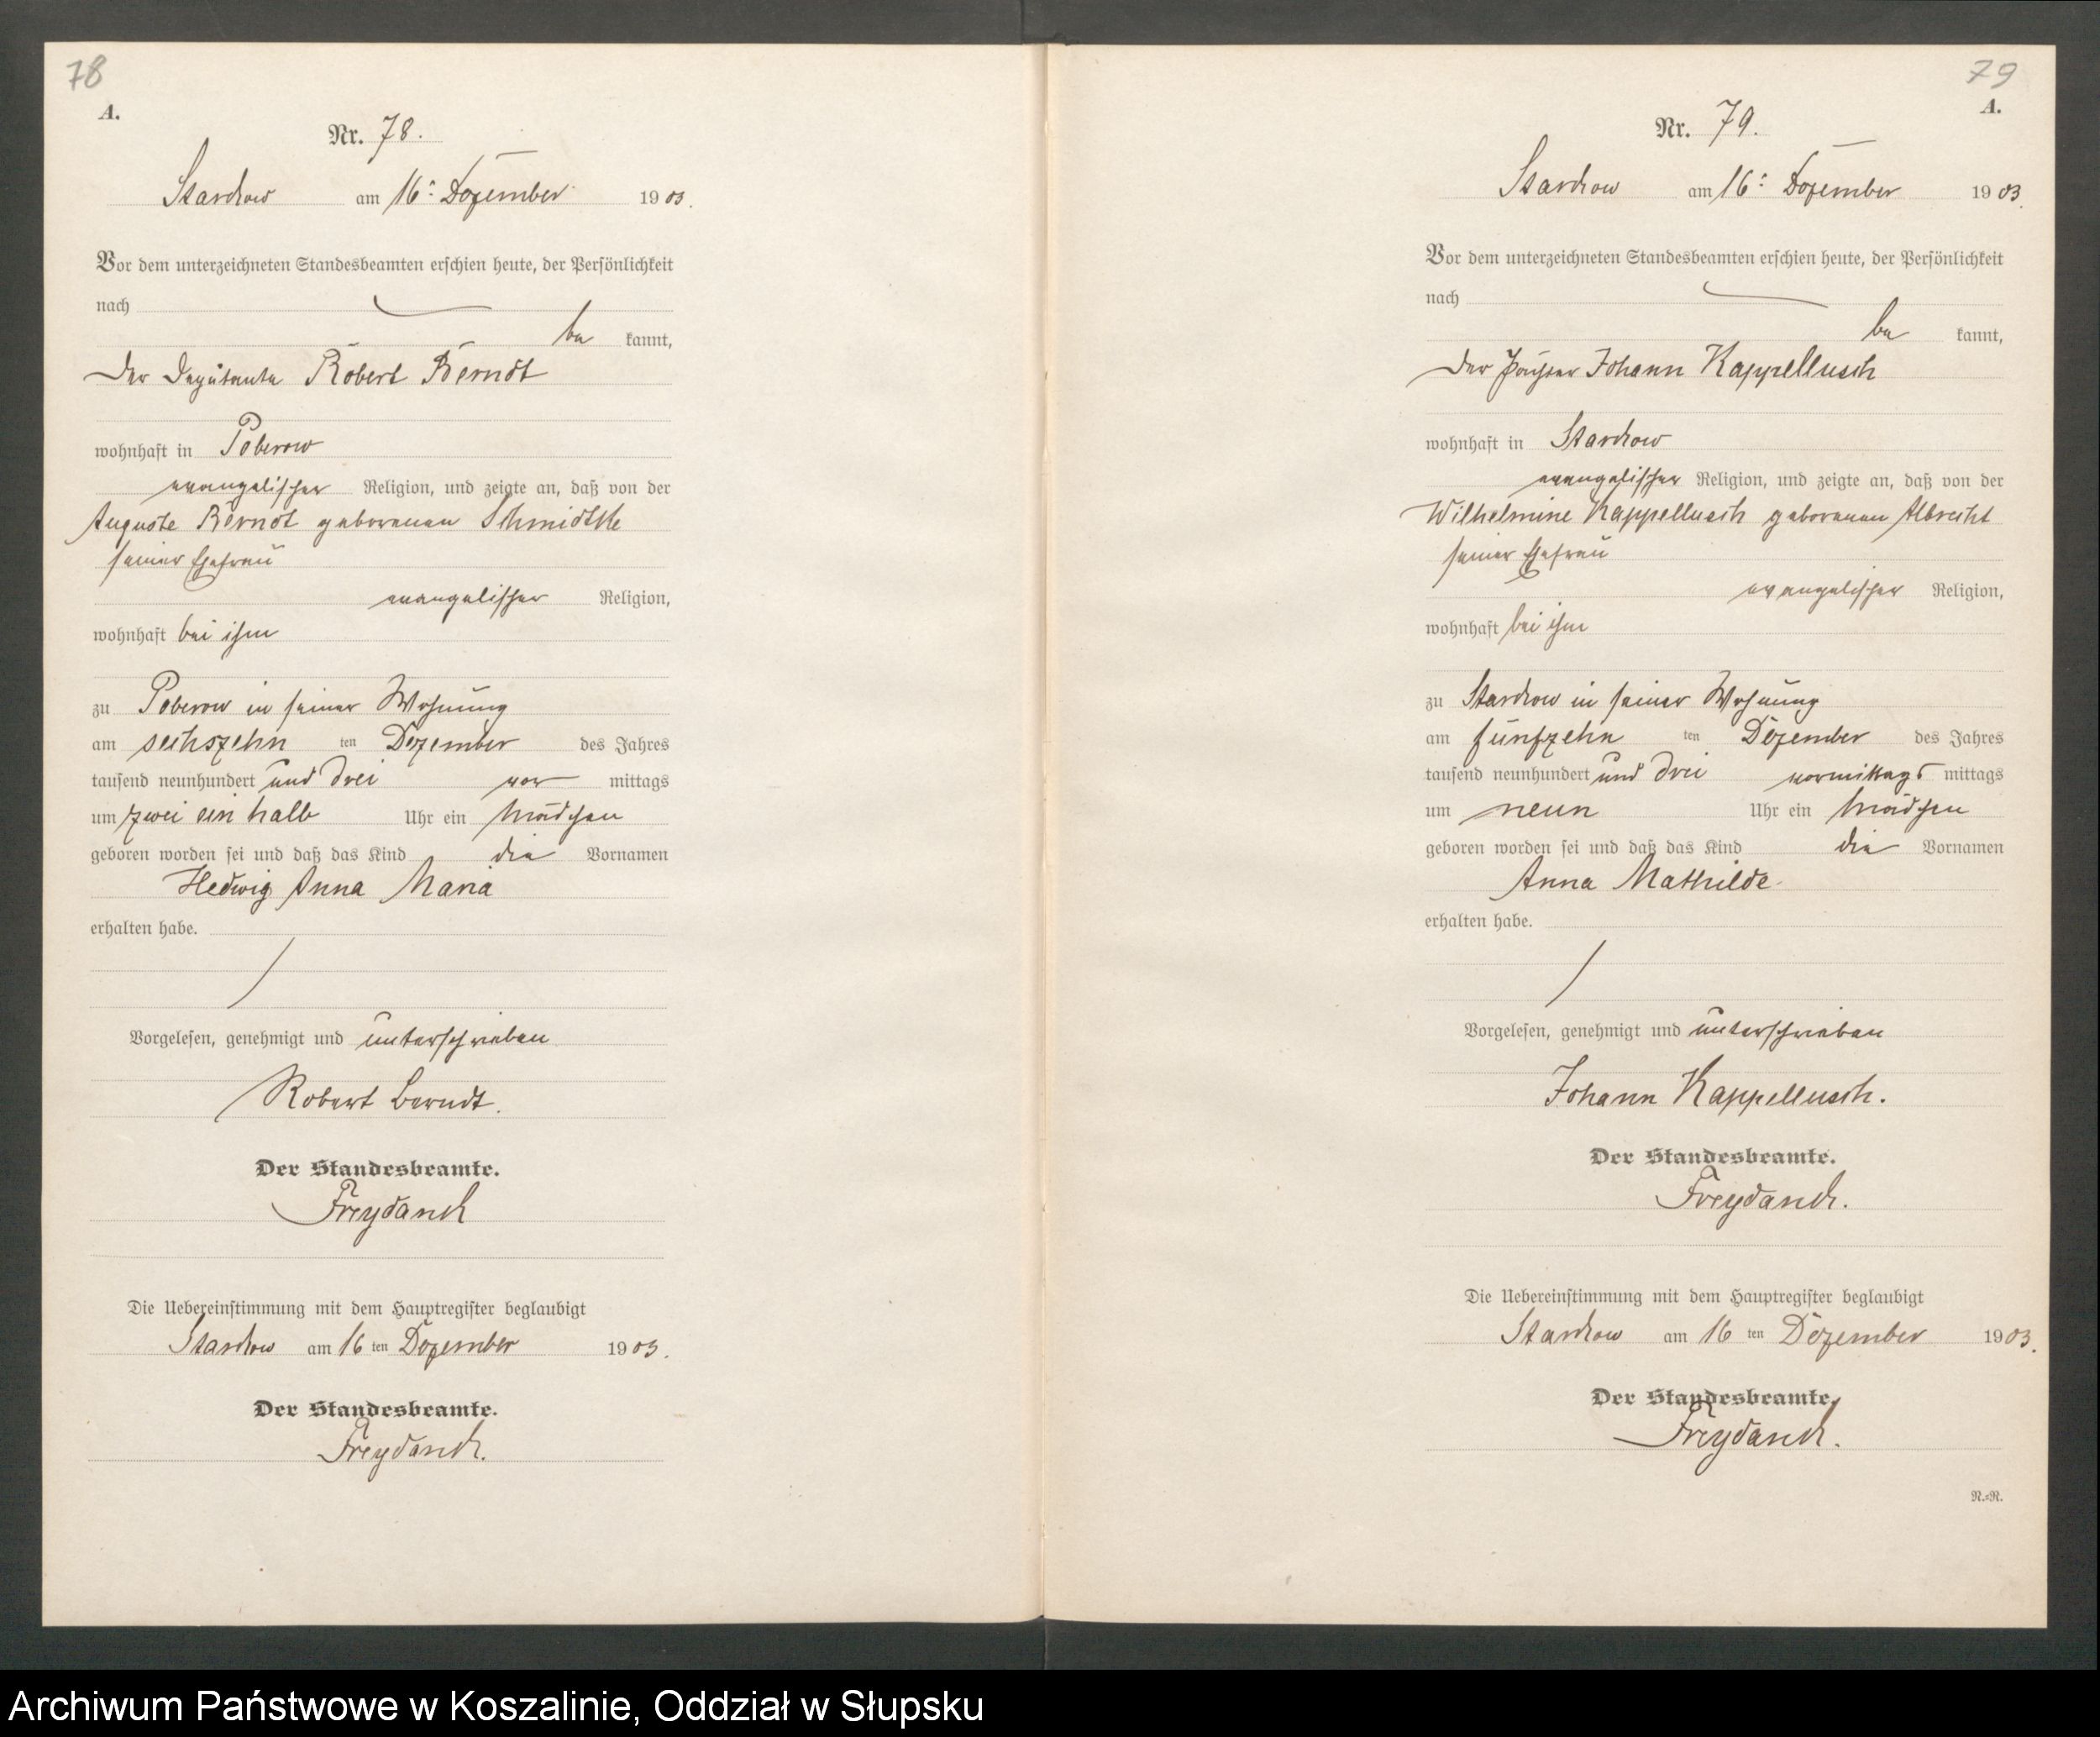 78
A.
Nr. 78.
Starchow am 16. Dezember 1903.
Vor dem unterzeichneten Standesbeamten erschien heute, der Persönlichkeit
nach
be kannt,
der Deputante Robert Berndt
wohnhaft in Poberow
evangelischer Religion, und zeigte an, daß von der
Auguste Berndt geborenen Schmidtke
seiner Ehefrau
evangelischer Religion,
wohnhaft bei ihm
zu Poberow in seiner Wohnung
am sechszehn ten Dezember des Jahres
tausend neunhundert und drei vor mittags
um zwei ein halb Uhr ein Mädchen
geboren worden sei und daß das Kind die Vornamen
Hedwig Anna Maria
erhalten habe.
Vorgelesen, genehmigt und unterschrieben
Robert Berndt.
Der Standesbeamte.
Freydanck
Die Uebereinstimmung mit dem Hauptregister beglaubigt
Starchow am 16 ten Dezember 1903.
Der Standesbeamte.
Freydanck.
79
A.
Nr. 79.
Starchow am 16. Dezember 1903.
Vor dem unterzeichneten Standesbeamten erschien heute, der Persönlichkeit
nach
be kannt,
der Johann Kappellusch
wohnhaft in Starchow
evangelischer Religion, und zeigte an, daß von der
Wilhelmine Kappellusch geborenen Albrecht
seiner Ehefrau
evangelischer Religion,
wohnhaft bei ihm
zu Starchow in seiner Wohnung
am fünfzehn ten Dezember des Jahres
tausend neunhundert und drei vormittags mittags
um neun Uhr ein Mädchen
geboren worden sei und daß das Kind die Vornamen
Anna Mathilde
erhalten habe.
Vorgelesen, genehmigt und unterschrieben
Johann Kappellusch.
Der Standesbeamte.
Freydanck.
Die Uebereinstimmung mit dem Hauptregister beglaubigt
Starchow am 16 ten Dezember 1903.
Der Standesbeamte.
Freydanck.
R.=R.
Archiwum Państwowe w Koszalinie, Oddział w Słupsku